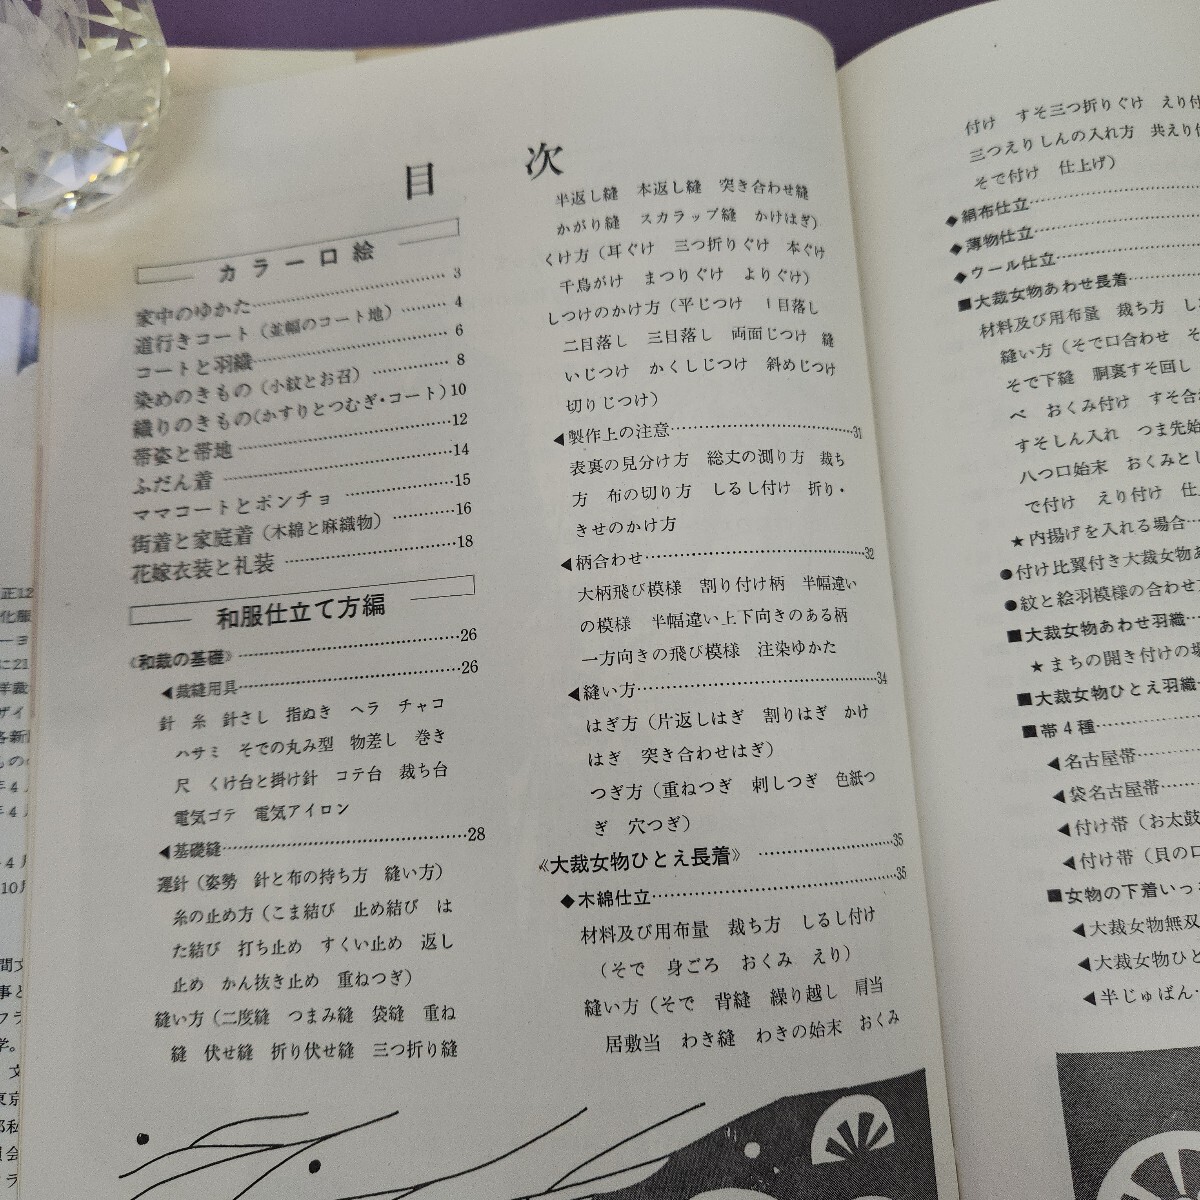 目次
カラー口絵
家中のゆかた……3
道行きコート（並幅のコート地）……4
コートと羽織……6
染めのきもの（小紋とお召）……8
織りのきもの（かすりとつむぎ・コート）10
帯姿と帯地……12
ふだん着……14
ママコートとポンチョ……15
街着と家庭着（木綿と麻織物）……16
花嫁衣装と礼装……18
和服仕立て方編
《和裁の基礎》……26
◀裁縫用具……26
針　糸　針さし　指ぬき　ヘラ　チャコ
ハサミ　そでの丸み型　物差し　巻き
尺　くけ台と掛け針　コテ台　裁ち台
電気ゴテ　電気アイロン
◀基礎縫……28
運針（姿勢　針と布の持ち方　縫い方）
糸の止め方（こま結び　止め結び　は
た結び　打ち止め　すくい止め　返し
止め　かん抜き止め　重ねつぎ）
縫い方（二度縫　つまみ縫　袋縫　重ね
縫　伏せ縫　折り伏せ縫　三つ折り縫
半返し縫　本返し縫　突き合わせ縫
かがり縫　スカラップ縫　かけはぎ）
くけ方（耳ぐけ　三つ折りぐけ　本ぐけ
千鳥がけ　まつりぐけ　よりぐけ）
しつけのかけ方（平じつけ　1目落し
二目落し　三目落し　両面じつけ　縫
いじつけ　かくしじつけ　斜めじつけ
切りじつけ）
◀製作上の注意……31
表裏の見分け方　総丈の測り方　裁ち
方　布の切り方　しるし付け　折り・
きせのかけ方
◀柄合わせ……32
大柄飛び模様　割り付け柄　半幅違い
の模様　半幅違い上下向きのある柄
一方向きの飛び模様　注染ゆかた
◀縫い方……34
はぎ方（片返しはぎ　割りはぎ　かけ
はぎ　突き合わせはぎ）
つぎ方（重ねつぎ　刺しつぎ　色紙つ
ぎ　穴つぎ）
《大裁女物ひとえ長着》……35
◆木綿仕立……35
材料及び用布量　裁ち方　しるし付け
（そで　身ごろ　おくみ　えり）
縫い方（そで　背縫　繰り越し　肩当
居敷当　わき縫　わきの始末　おくみ
付け　すそ三つ折りぐけ　えり付
三つえりしんの入れ方　共えり
そで付け　仕上げ）
◆絹布仕立……
◆薄物仕立……
◆ウール仕立……
■大裁女物あわせ長着……
材料及び用布量　裁ち方　し
縫い方（そで口合わせ　そ
そで下縫　胴裏すそ回し
べ　おくみ付け　すそ合
すそしん入れ　つま先始
八つ口始末　おくみとし
で付け　えり付け　仕
★内揚げを入れる場合……
●付け比翼付き大裁女物あ
●紋と絵羽模様の合わせ
■大裁女物あわせ羽織……
★まちの開き付けの場
■大裁女物ひとえ羽織……
■帯4種……
◀名古屋帯……
◀袋名古屋帯……
◀付け帯（お太鼓
◀付け帯（貝の口
■女物の下着いっ
◀大裁女物無双
◀大裁女物ひと
◀半じゅばん……
正12
化服
ーョ
に21
洋裁
ザイ
各新
もの
年4
年4
4月
10月
間文
事と
フラ
学。
文
東京
部私
員会
ラ